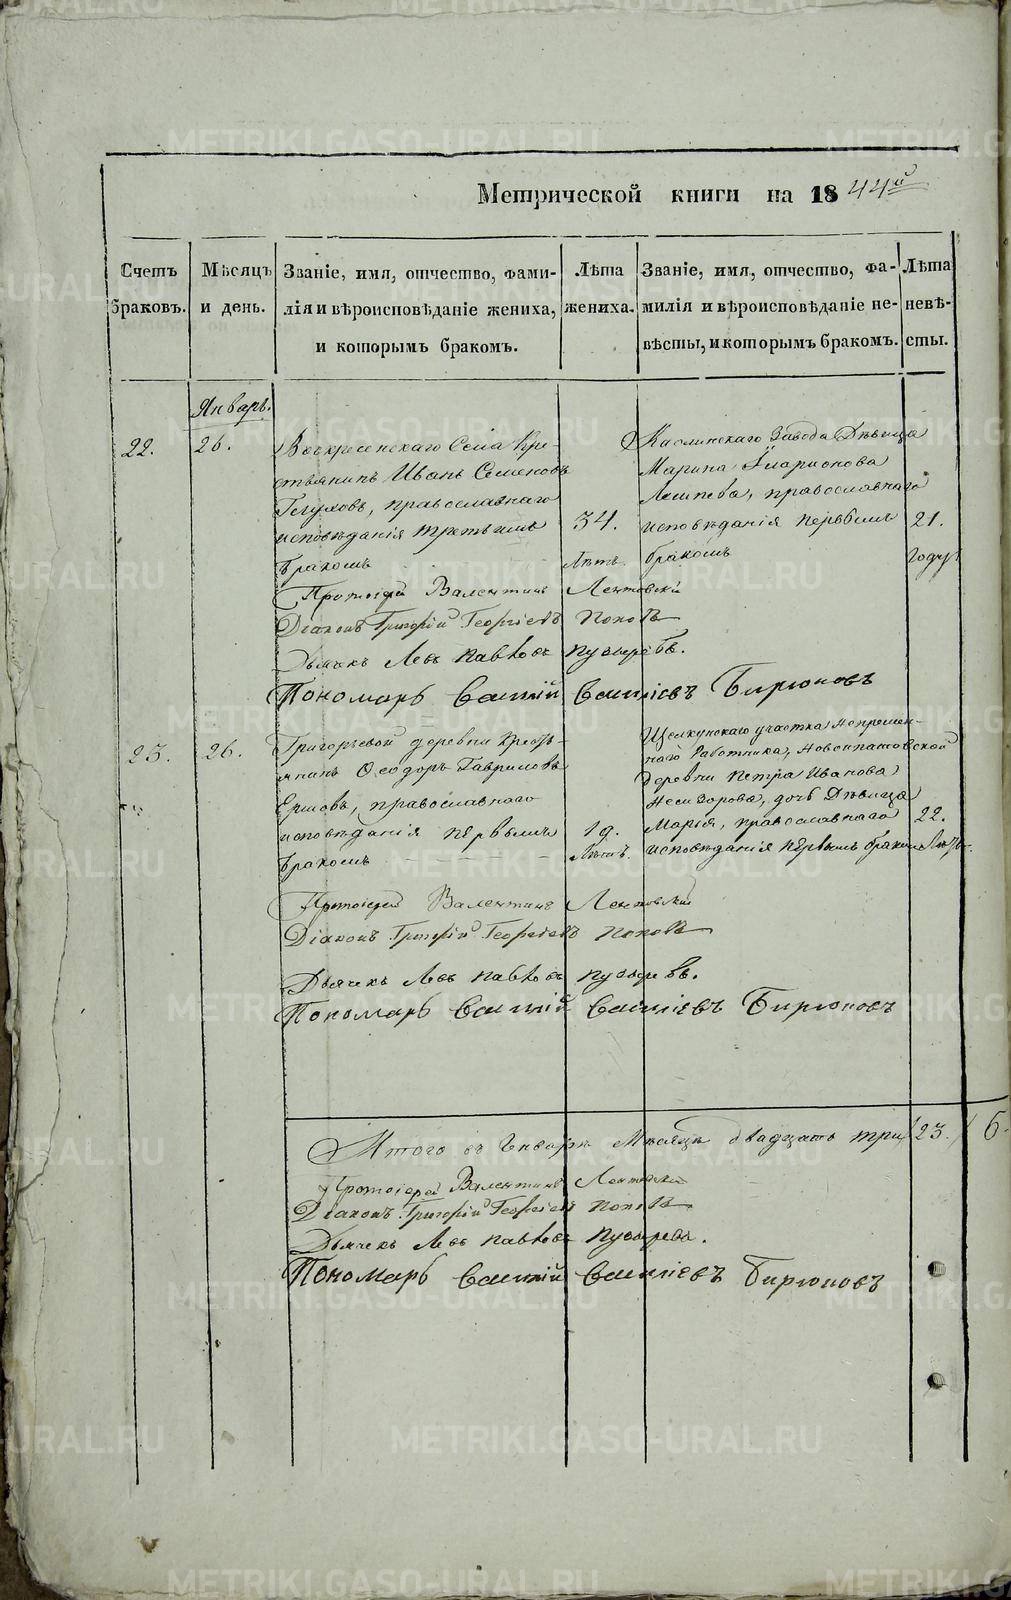 Метрической книги на 1844й
Счетъ браковъ.
Мѣсяцъ и день.
Званіе, имя, отчество, фами-
лія и вѣроисповѣданіе жениха,
и которымъ бракомъ.
Лѣта
жениха.
Званіе, имя, отчество, фа-
милія и вѣроисповѣданіе не-
вѣсты, и которымъ бракомъ.
Лѣта
невѣ-
сты.
Январь.
22.
26.
Воскресенскаго Села Кре-
стьянинъ Иванъ Семеновъ
православнаго
исповѣданія третьимъ
бракомъ
34.
Лѣтъ.
Каслинскаго Завода Дѣвица
Марина Иларионова
православнаго
исповѣданія первымъ
бракомъ
21.
году
Протоіерей Валентинъ Лентовскій
Діаконъ Григорій Георгіевъ Поповъ
Дьячекъ Левъ Павловъ Пузыревъ.
Пономарь Василій Василіевъ Бирюковъ
23.
26.
Григорьевой деревни Кресть-
янинъ Ѳеодоръ Гавриловъ
Ершовъ, православнаго
исповѣданія первымъ
бракомъ
19.
Лѣтъ.
Щелкунскаго участка Непремен-
наго Работника, Новоипатовской
деревни Петра Иванова
дочь Дѣвица
Марія, православнаго
исповѣданія первымъ бракомъ
22.
Лѣтъ.
Протоіерей Валентинъ Лентовскій
Діаконъ Григорій Георгіевъ Поповъ
Дьячекъ Левъ Павловъ Пузыревъ.
Пономарь Василій Василіевъ Бирюковъ
Итого въ Генварѣ Мѣсяцѣ двадцать три /23./ 6
Протоіерей Валентинъ Лентовскій
Діаконъ Григорій Георгіевъ Поповъ
Дьячекъ Левъ Павловъ Пузыревъ.
Пономарь Василій Василіевъ Бирюковъ
METRIKI.GASO-URAL.RU